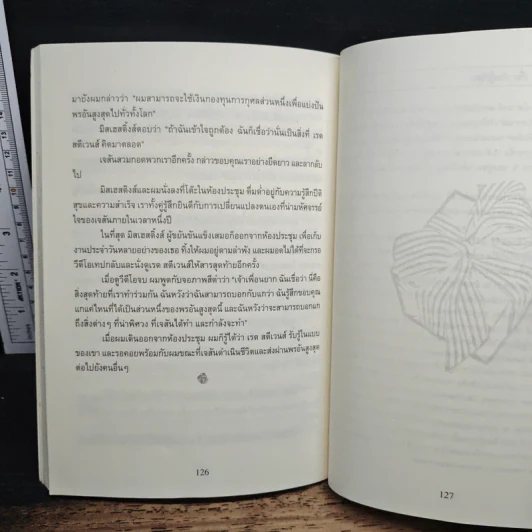 มายังผมกล่าวว่า "ผมสามารถจะใช้เงินกองทุนการกุศลส่วนหนึ่งเพื่อแบ่งปัน
พรอันสูงสุดไปทั่วทั้งโลก"
มิสเฮสติ้งส์ตอบว่า "ถ้าฉันเข้าใจถูกต้อง ฉันก็เชื่อว่านั่นเป็นสิ่งที่ เรด
สตีเวนส์ คิดมาตลอด"
เจสันสวมกอดพวกเราอีกครั้ง กล่าวขอบคุณเราอย่างยืดยาว และลากลับ
ไป
มิสเฮสติงส์และผมนั่งลงที่โต๊ะในห้องประชุม ดื่มด่ำอยู่กับความรู้สึกปีติ
สุขและความสำเร็จ เราทั้งคู่รู้สึกยินดีกับการเปลี่ยนแปลงตนเองที่น่ามหัศจรรย์
ใจของเจสันภายในเวลาหนึ่งปี
ในที่สุด มิสเฮสติ้งส์ ผู้ขยันขันแข็งเสมอก็ออกจากห้องประชุม เพื่อเก็บ
งานประจำวันหลายอย่างของเธอ ทิ้งให้ผมอยู่ตามลำพัง และผมอดไม่ได้ที่จะกรอ
วีดีโอเทปกลับและนั่งดูเรด สตีเวนส์ให้สารสุดท้ายอีกครั้ง
เมื่อดูวีดีโอจบ ผมพูดกับจอภาพสีดำว่า "เจ้าเพื่อนยาก ฉันเชื่อว่า นี่คือ
สิ่งสุดท้ายที่เราทำร่วมกัน ฉันหวังว่าฉันสามารถบอกกับแกว่า ฉันรู้สึกขอบคุณ
แกแค่ไหนที่ได้เป็นส่วนหนึ่งของพรอันสูงสุดนี้ และฉันหวังว่าจะสามารถบอกแก
ถึงสิ่งต่างๆ ที่น่าพิศวง ที่เจสันได้ทำ และกำลังจะทำ"
เมื่อผมเดินออกจากห้องประชุม ผมก็รู้ได้ว่า เรด สตีเวนส์ รับรู้ในแบบ
ของเขา และรอคอยพร้อมกับผมขณะที่เจสันดำเนินชีวิตและส่งผ่านพรอันสูงสุด
ต่อไปยังคนอื่นๆ
126
127